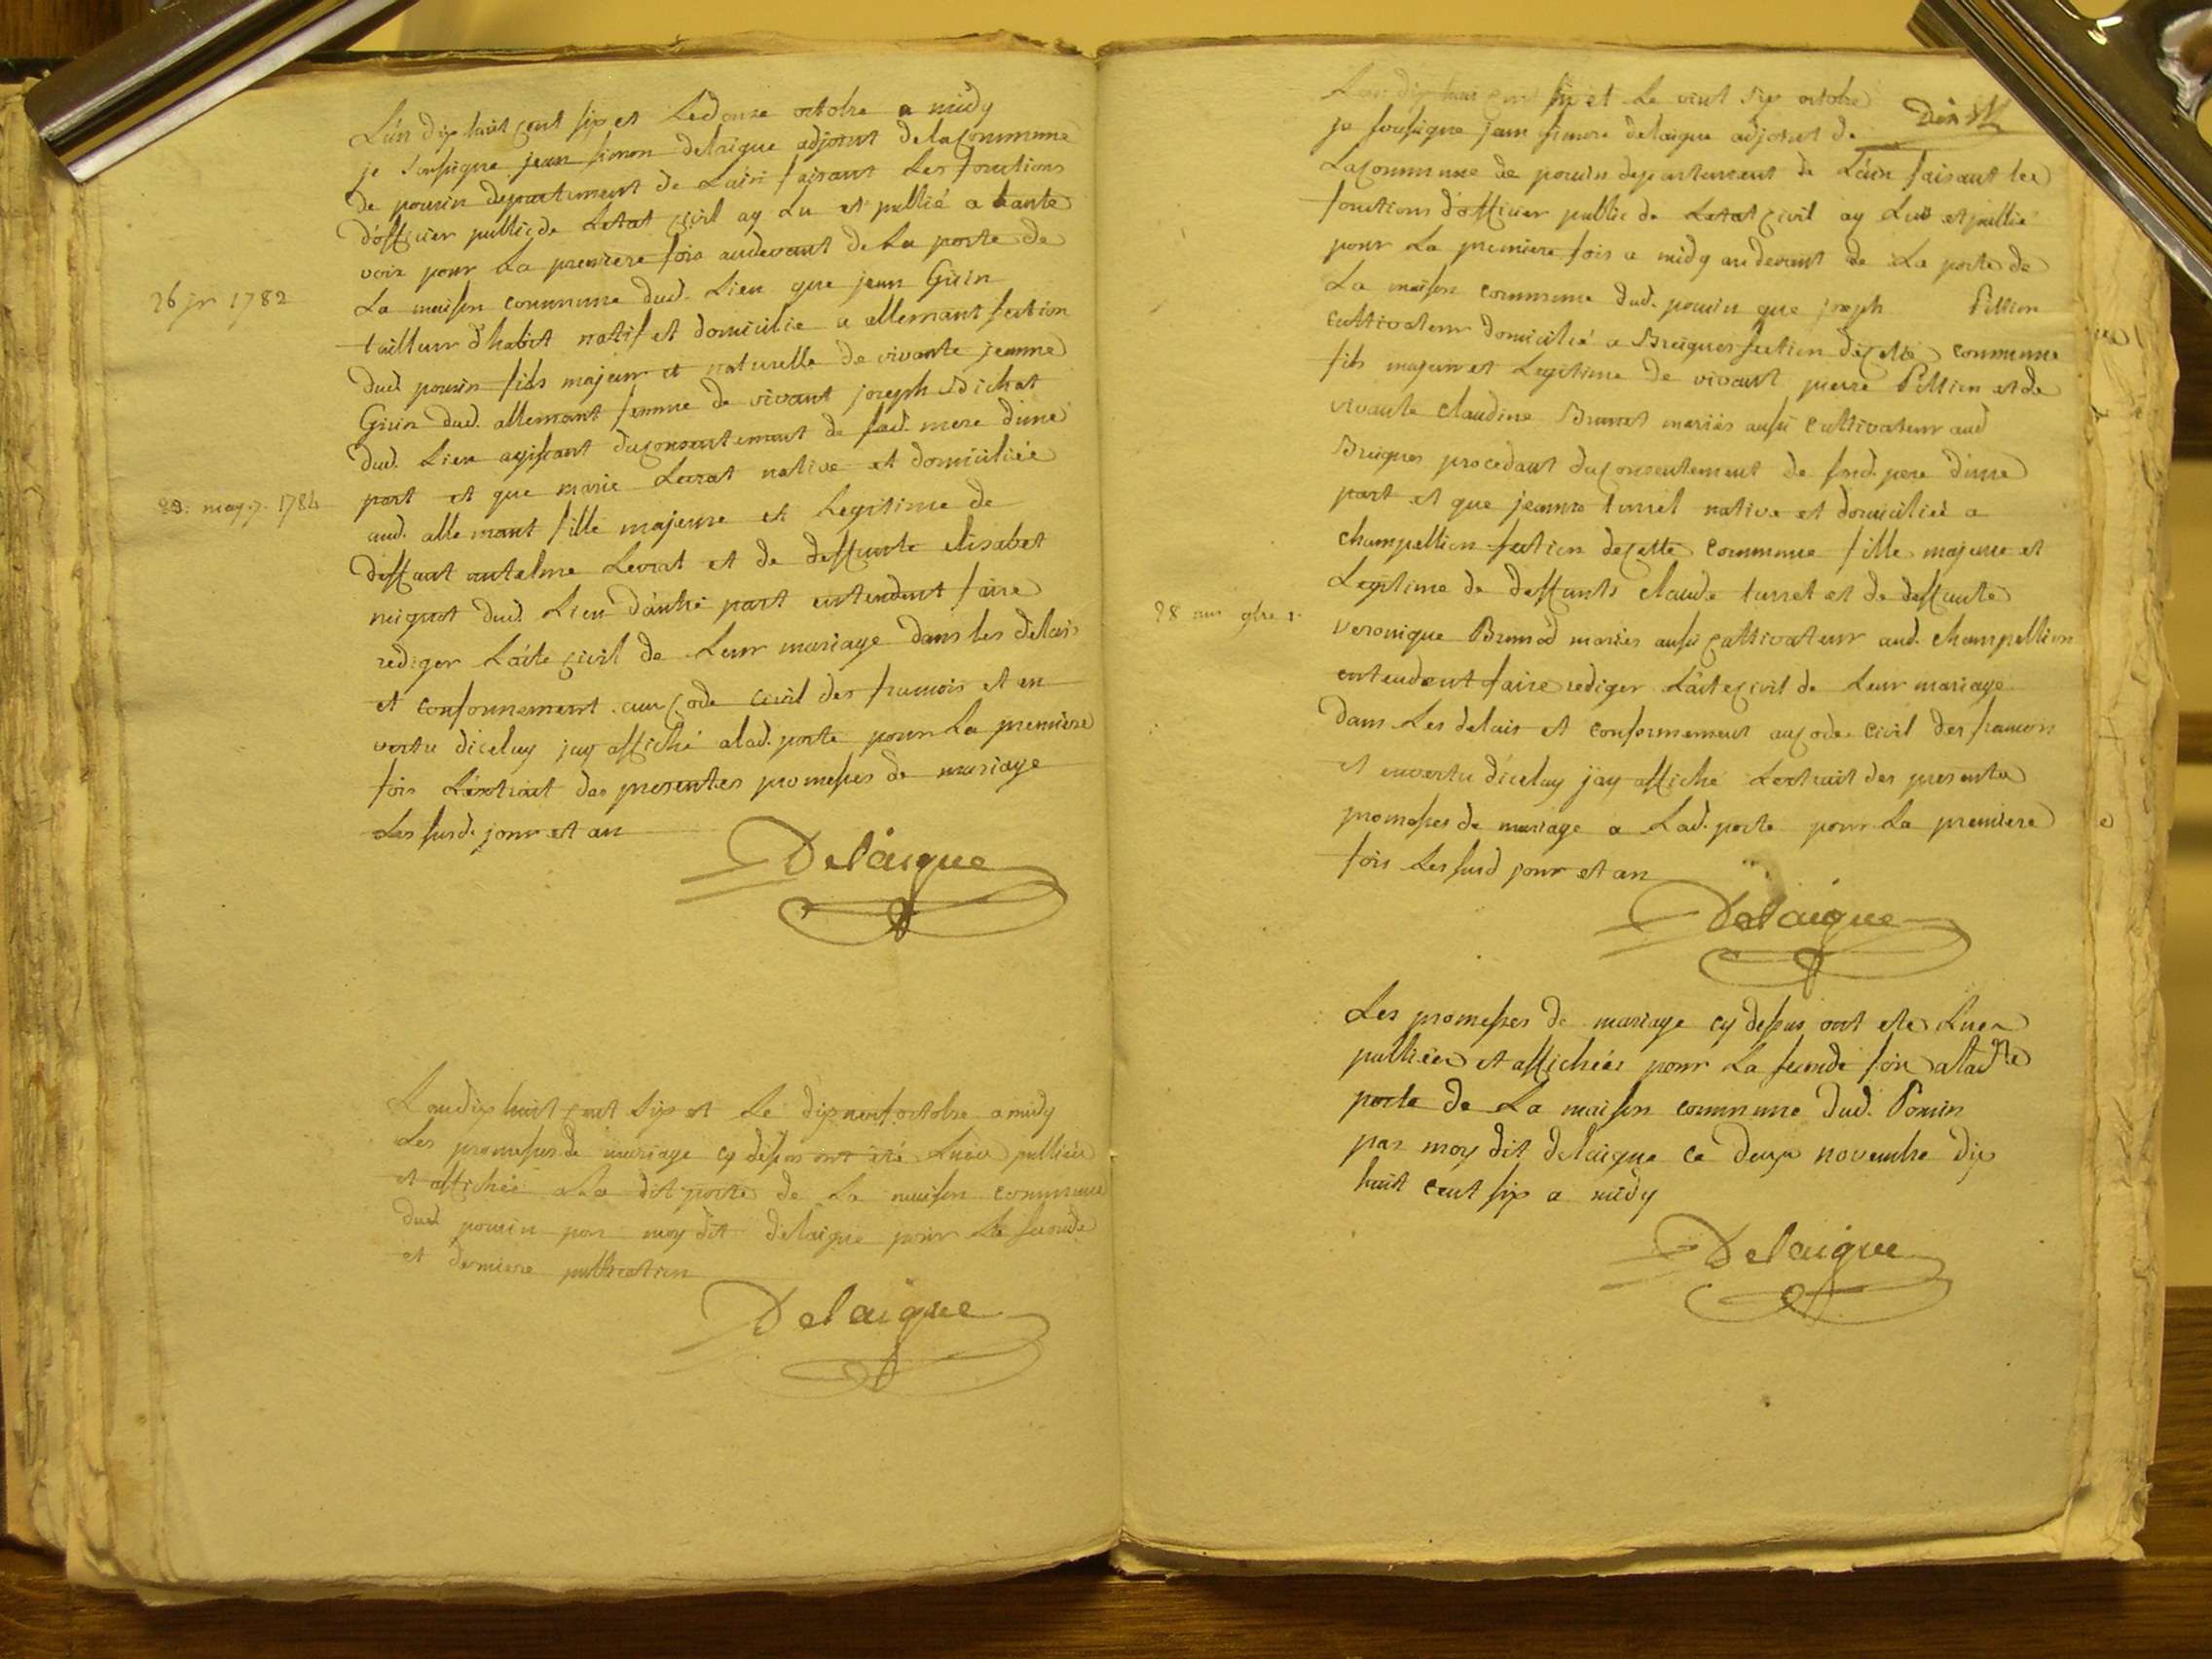 L'an dix huit cent six et Le douze octobre a midy
je soussigne jean simon delaigue adjoint de la Commune
de pouin departement de L'ain faisant Les fonctions
d'officier public de L'etat civil ay Lu et publié a haute
voix pour La premiere fois audevant de La porte de
La maison commune dud. Lieu que jean Guin
tailleur d'habit natif et domicilié a allemant section
dud pouin fils majeur et naturelle de vivante jeanne
Guin dud. allemant femme de vivant joseph Bichat
dud. Lieu agissant du consentement de sad. mere d'une
part et que marie Levrat native et domiciliée
aud. allemant fille majeure et Legitime de
deffunt antelme Levrat et de deffunte elisabet
niquot dud. Lieu d'autre part entendent faire
rediger L'acte civil de Leur mariage dans les delais
et conformement au code civil des francois et en
vertu diceluy jay affiché a lad. porte pour La premiere
fois L'extrait des presentes promesses de mariage
Les susd. jour et an
Delaigue
26 jr 1782
23. may. 1784
L'an dix huit cent six et Le dix neuf octobre a midy
Les promesses de mariage cy dessus ont été Lues publiée
et affichée a La dit porte de La maison commune
dud pouin par moy dit delaigue pour La seconde
et derniere publication
Delaigue
L'an dix huit cent six et Le vint six octobre
je soussigne jean simon delaigue adjoint de
La Commune de pouin departement de L'ain faisant les
fonctions d'officier public de Letat civil ay Lu et publié
pour La premiere fois a midy au devant de La porte de
La maison commune dud. pouin que joseph Pillion
cultivateur domicilié a Breignes section de cette commune
fils majeur et Legitime de vivant pierre Pillion et de
vivante claudine Brunet mariés aussi cultivateur aud
Breignes procedant du consentement de sond. pere d'une
part et que jeanne turrel native et domiciliée a
champollion section de cette Commune fille majeure et
Legitime de deffunts claude turrel et de deffunte
veronique Brunod mariés aussi cultivateur aud. champollion
entendent faire rediger L'acte civil de Leur mariage
dans Les delais et conformement au code civil des francois
et en vertu diceluy j'ay affiché L'extrait des presente
promesses de mariage a Lad. porte pour La premiere
fois Les susd jour et an
Delaigue
Les promesses de mariage cy dessus ont ete Lues
publiées et affichées pour La seconde fois a lad.te
porte de La maison commune dud. Pouin
par moy dit delaigue ce deux novembre dix
huit cent six a midy
Delaigue